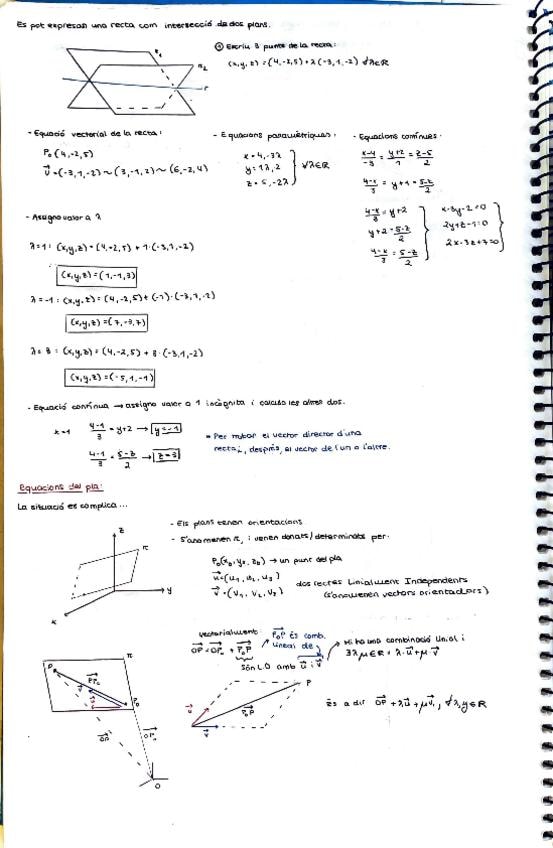 Es pot expresar una recta com intersecció de dos plans.
π1
π2
r
① Escriu 3 punts de la recta:
(x,y,z) = (4,-2,5) + λ(-3,1,-2) ∀λ∈R
- Equació vectorial de la recta:
P0 (4,-2,5)
v = (-3,1,-2) ~ (3,-1,2) ~ (6,-2,4)
- Equacions paramètriques:
x = 4,-3λ
y = 1λ,2
z = 5,-2λ
∀λ∈R
- Equacions contínues:
x-4/-3 = y+2 = z-5/2
4-x/3 = y+2 = 5-z/2
4-x/3 = y+2
y+2 = 5-z/2
4-x/3 = 5-z/2
x-3y-2=0
2y+z-1=0
2x-3z+7=0
- Assigno valor a λ
λ=1: (x,y,z) = (4,-2,5) + 1·(-3,1,-2)
(x,y,z) = (1,-1,3)
λ=-1: (x,y,z) = (4,-2,5) + (-1)·(-3,1,-2)
(x,y,z) = (7,-3,7)
λ=3: (x,y,z) = (4,-2,5) + 3·(-3,1,-2)
(x,y,z) = (-5,1,-1)
- Equació contínua → assigno valor a 1 incògnita i calculo les altres dos.
x=1 4-1/3 = y+2 → y=-1
4-1/3 = 5-z/2 → z=3
* Per trobar el vector director d'una
recta, després, el vector de l'un a l'altre.
Equacions del pla:
La situació es complica...
z
π
y
x
- Els plans tenen orientacions
- S'anomenen π, i venen donats/determinats per:
P0(x0, y0, z0) → un punt del pla
u = (u1, u2, u3)
v = (v1, v2, v3)
dos rectes Linialment Independents
(s'anomenen vectors orientadors)
Vectorialment:
OP = OP0 + P0P
P0P és comb.
lineal de
són L.D amb u i v
Hi ha una combinació linial i
∃λ,μ∈R = λ·u+μ v
P
π
P0P
P0
OP
OP0
O
u
v
P0P
P
És a dir OP + λu + μv, ∀λ,μ∈R